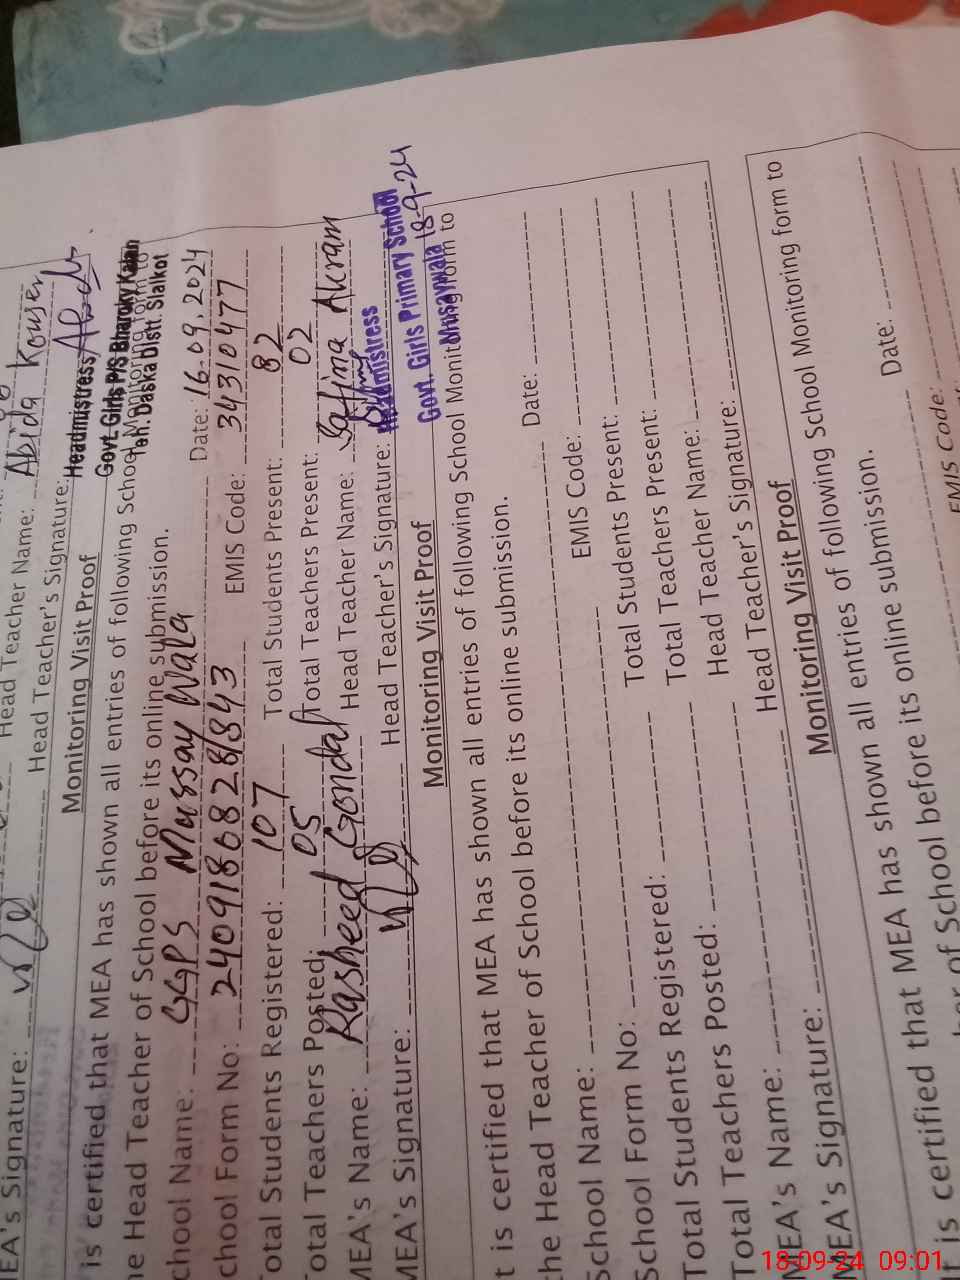 Head Teacher Name: Abida Kouser
EA's Signature: Head Teacher's Signature:
Headmistress
Govt. Girls P/S Bharoky Kalan
Teh. Daska Distt. Sialkot
Monitoring Visit Proof
is certified that MEA has shown all entries of following School Monitoring form to
he Head Teacher of School before its online submission.
chool Name: GGPS Mussay Wala Date: 16.09.2024
chool Form No: 2409186828843 EMIS Code: 34310477
otal Students Registered: 107 Total Students Present: 82
otal Teachers Posted: 05 Total Teachers Present: 02
MEA's Name: Rasheed Gondal Head Teacher Name: Saffma Akram
MEA's Signature: Head Teacher's Signature:
Headmistress
Govt. Girls Primary School
Musaywala 18-9-24
Monitoring Visit Proof
t is certified that MEA has shown all entries of following School Monitoring form to
the Head Teacher of School before its online submission.
School Name: Date:
School Form No: EMIS Code:
Total Students Registered: Total Students Present:
Total Teachers Posted: Total Teachers Present:
MEA's Name: Head Teacher Name:
MEA's Signature: Head Teacher's Signature:
Monitoring Visit Proof
t is certified that MEA has shown all entries of following School Monitoring form to
her of School before its online submission.
Date:
EMIS Code:
18-09-24 09:01